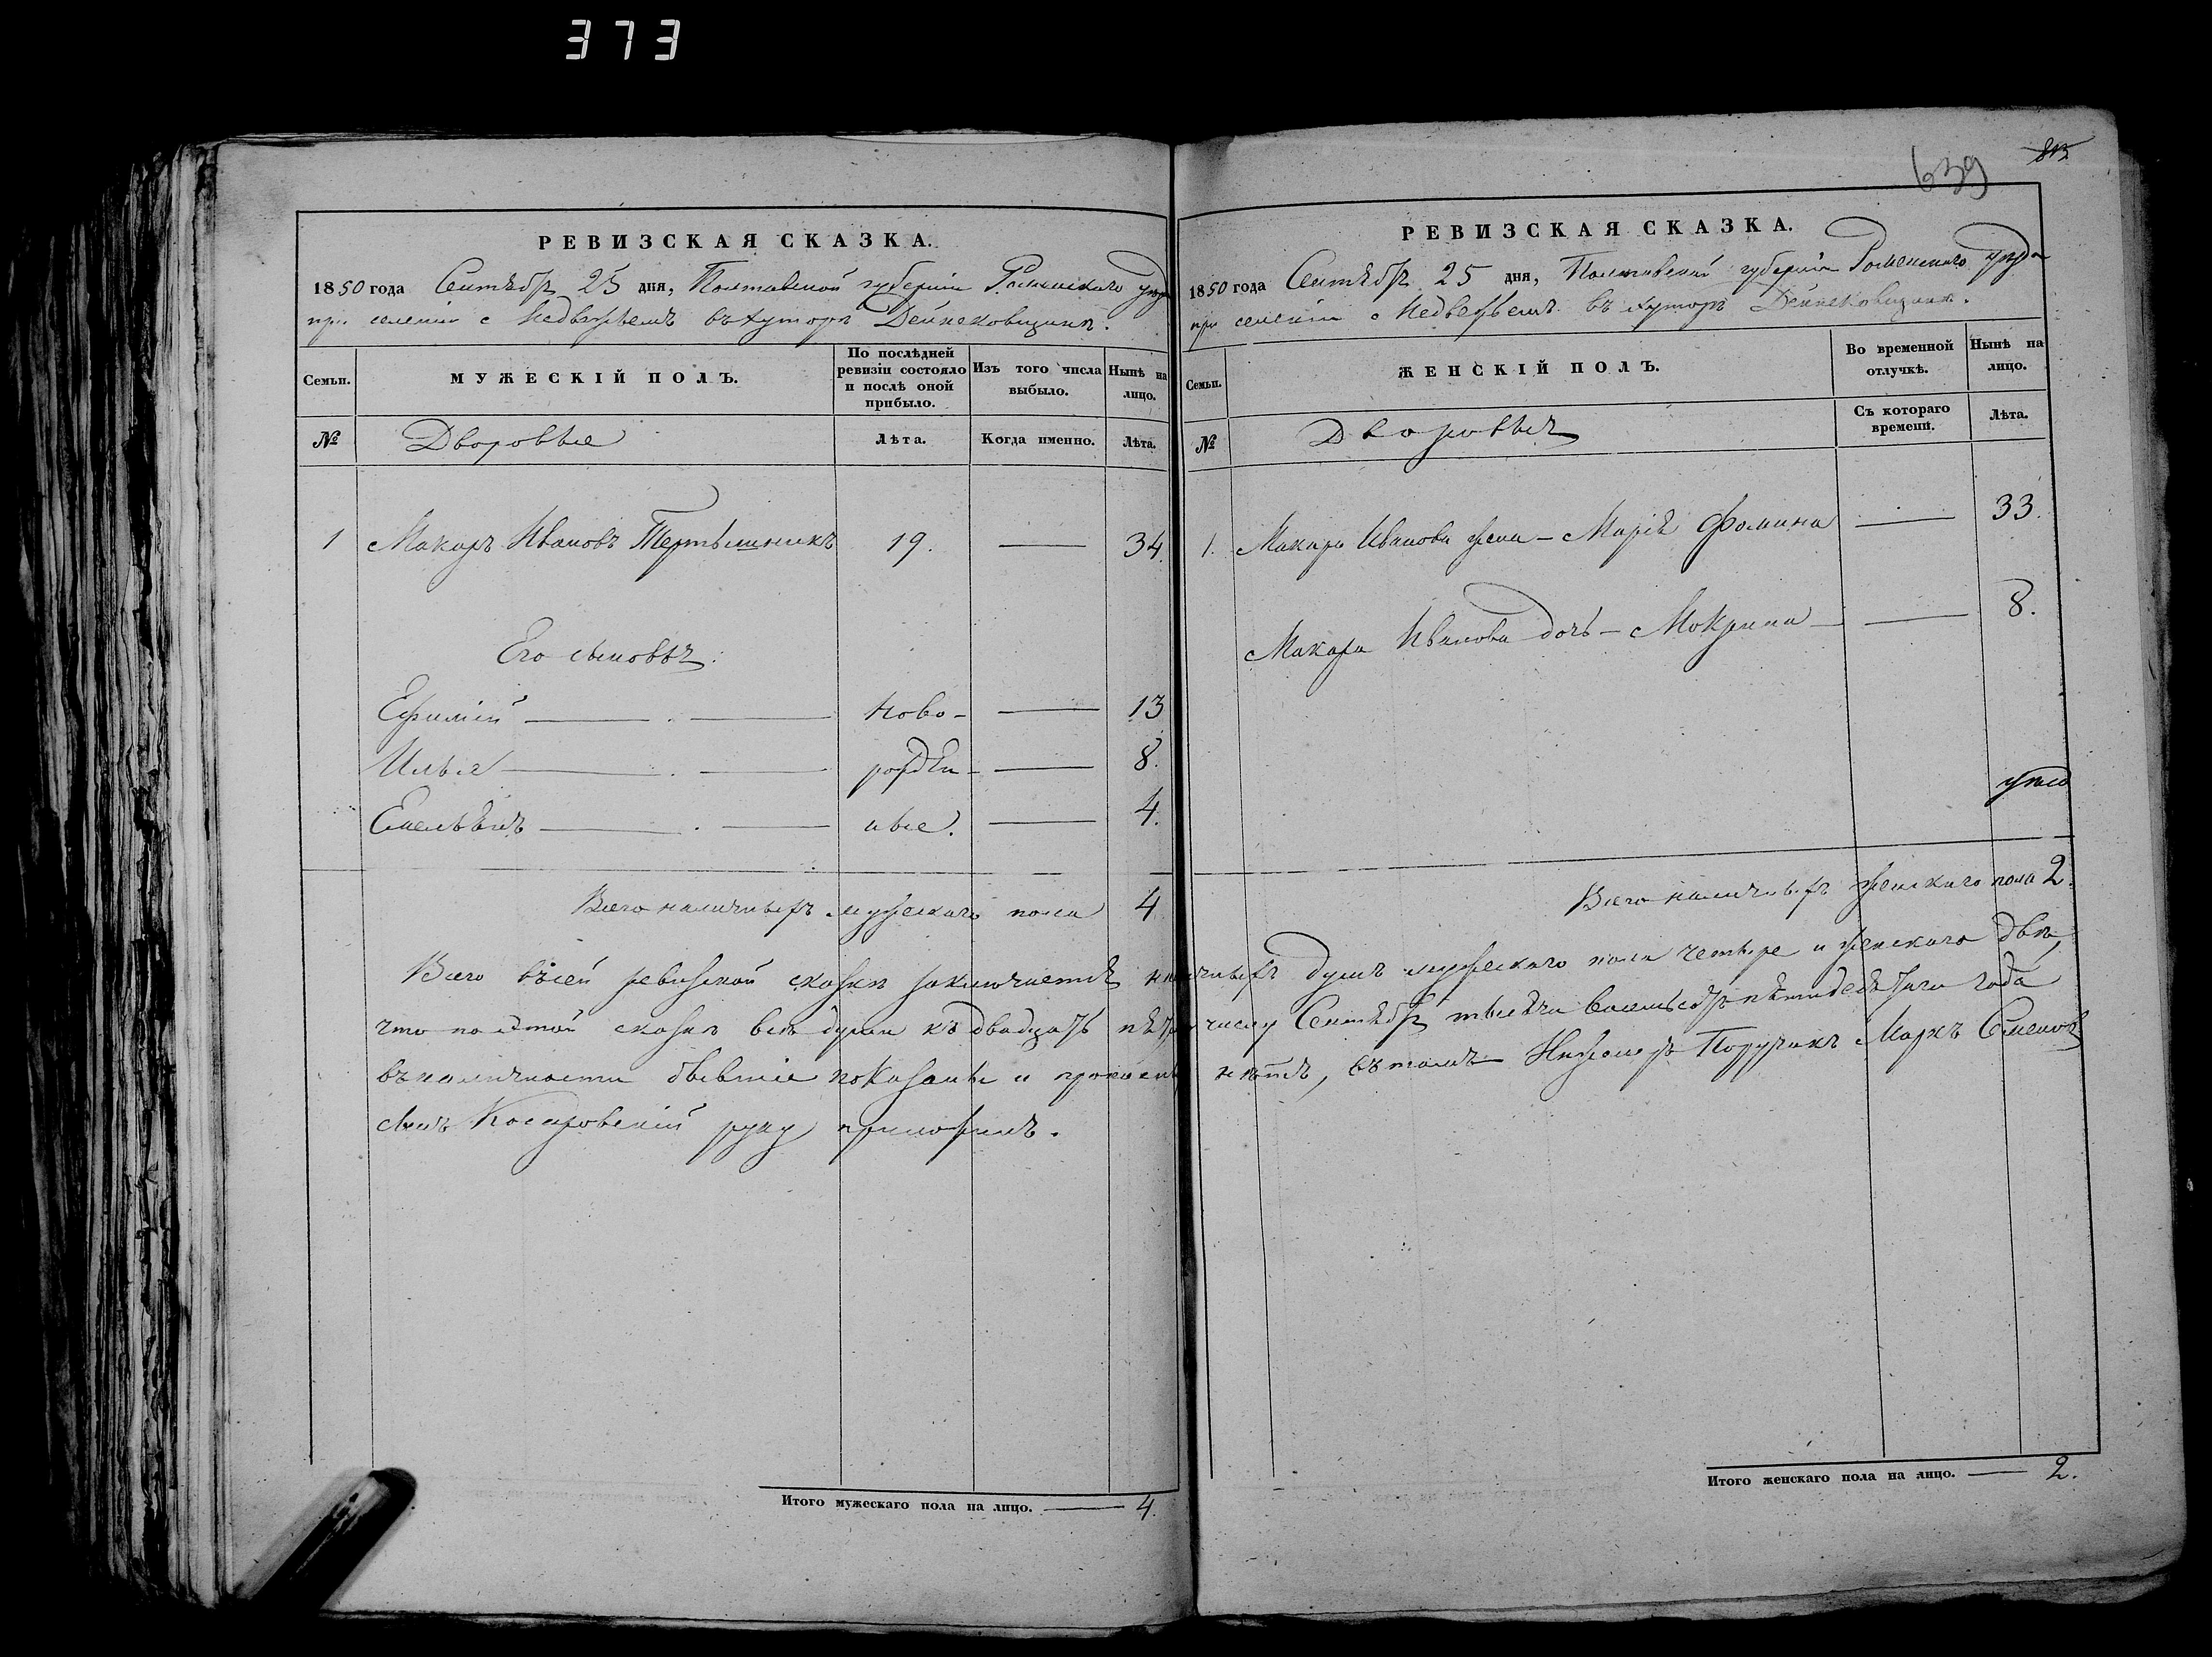 373
639
813
РЕВИЗСКАЯ СКАЗКА.
1850 года Сентября 25 дня, Полтавской губерніи Роменскаго уѣзда
при селеніи с Медвежьемъ въ хуторѣ Дейнековщинѣ.
Семьи.
МУЖЕСКІЙ ПОЛЪ.
По послѣдней ревизіи состояло и послѣ оной прибыло.
Изъ того числа выбыло.
Нынѣ на лицо.
№
Дворовые
Лѣта.
Когда именно.
Лѣта.
1 Макаръ Ивановъ Тертышникъ 19. — 34.
Его сыновья:
Ефимій — ново- — 13
Илья — рожден- — 8.
Емельянъ — ные. — 4.
Всего наличныхъ мужескаго пола 4
Итого мужескаго пола на лицо. — 4.
РЕВИЗСКАЯ СКАЗКА.
1850 года Сентября 25 дня, Полтавской губерніи Роменскаго уѣзда
при селеніи с Медвежьемъ въ хуторѣ Дейнековщинѣ.
Семьи.
ЖЕНСКІЙ ПОЛЪ.
Во временной отлучкѣ.
Нынѣ на лицо.
№
Дворовыя
Съ котораго времени.
Лѣта.
1. Макара Иванова жена – Марія Фомина — 33.
Макара Иванова дочь – Мокрина — 8.
Всего наличныхъ женскаго пола 2.
Всего въ сей ревизской сказкѣ заключается наличныхъ душъ мужескаго пола четыре и женскаго двѣ,
что по этой сказкѣ всѣ души къ двадцать пятому числу Сентября тысяча восемьсотъ пятидесятаго года
въ наличности бывшіе показаны и прописныхъ нѣтъ, въ томъ Поручикъ Маркъ Семеновъ
сынъ руку приложилъ.
Итого женскаго пола на лицо. — 2.